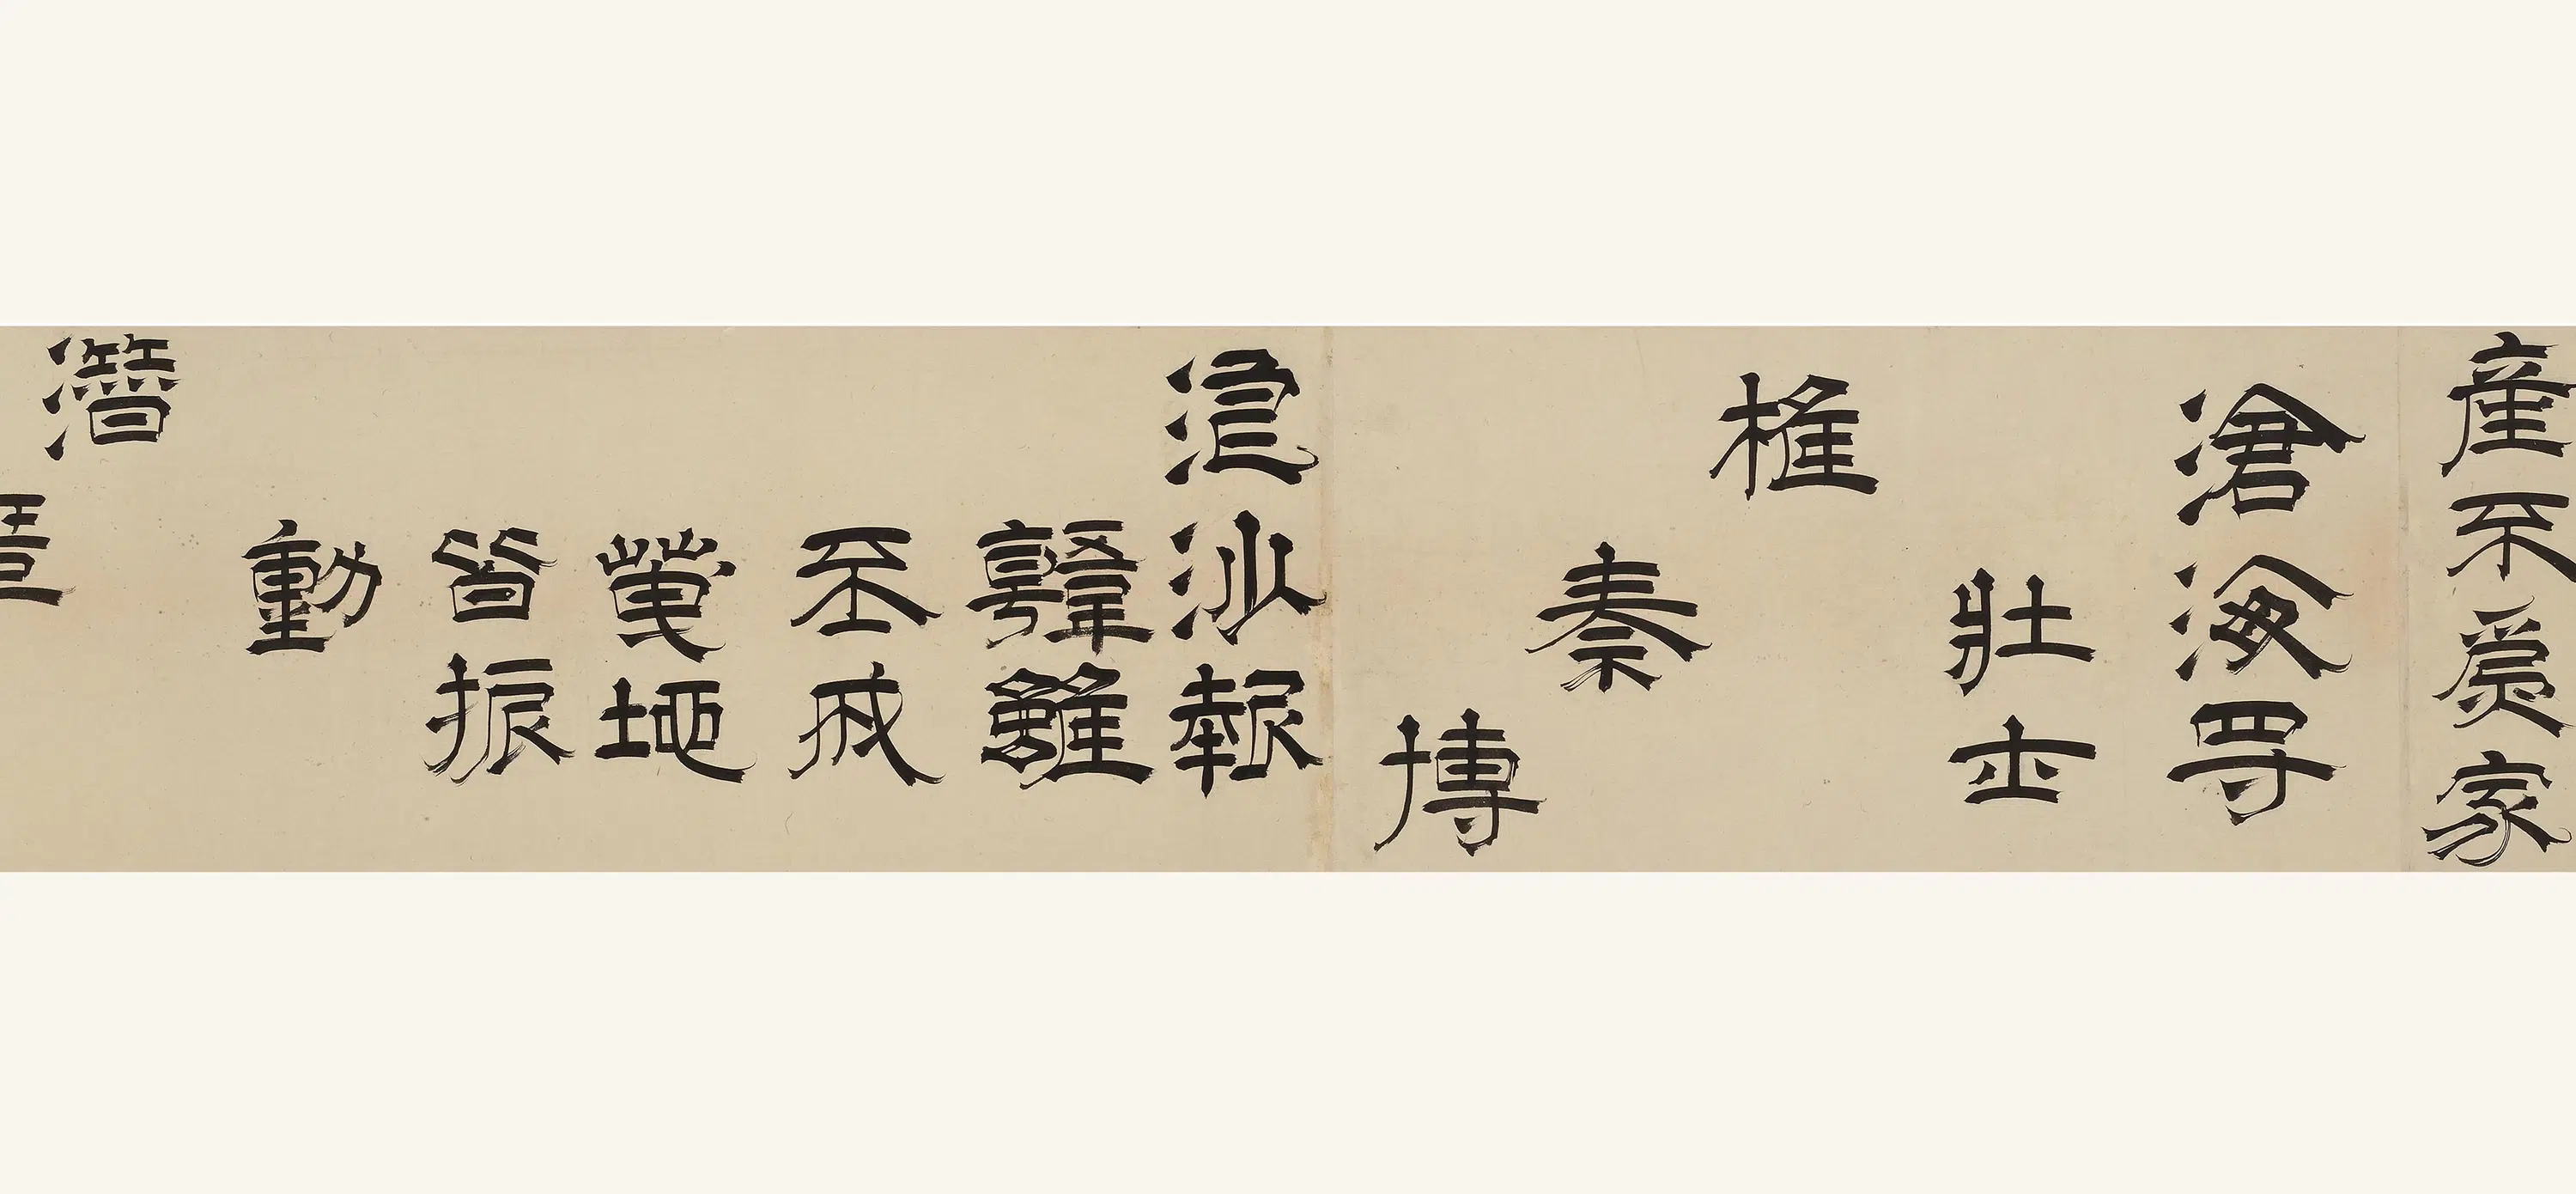 產不爲家
滄海得
壯士
椎
秦
搏
浪沙報
韓雖
不成
天地
皆振
動
潛